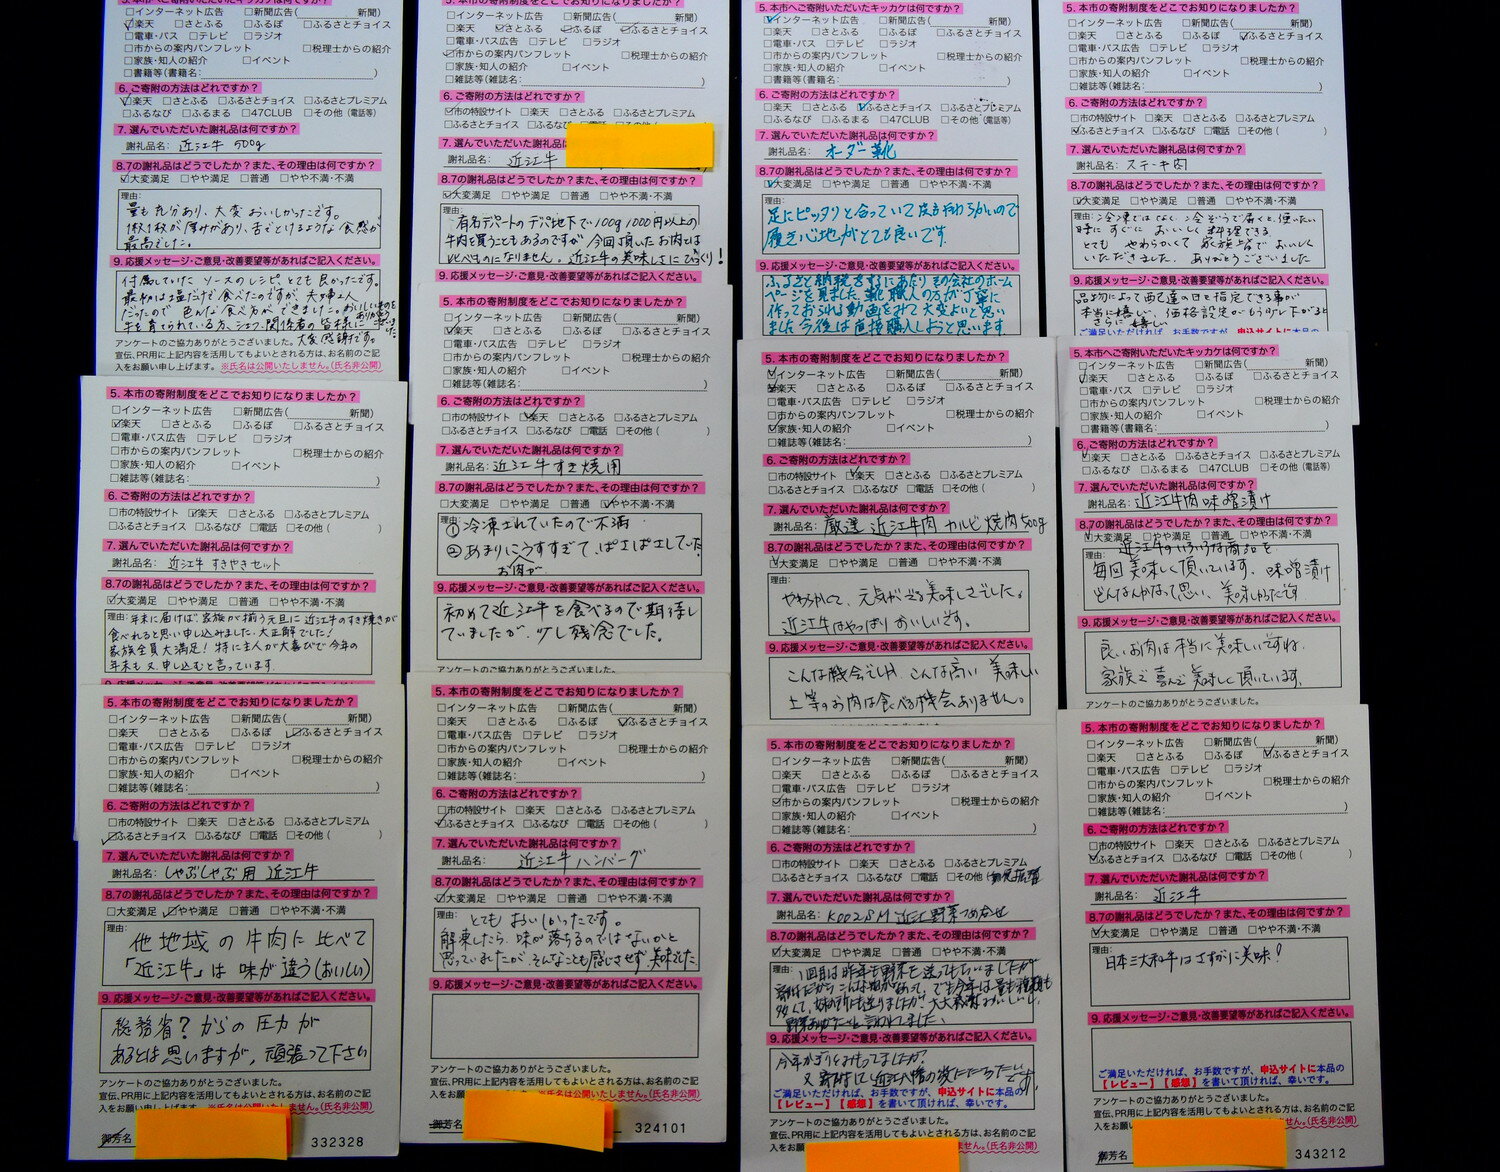 5. 本市へご寄附いただいたキッカケは何ですか?
□インターネット広告 □新聞広告( 新聞)
☑楽天 □さとふる □ふるぽ □ふるさとチョイス
□電車・バス広告 □テレビ □ラジオ
□市からの案内パンフレット □税理士からの紹介
□家族・知人の紹介 □イベント
□書籍等(書籍名: )
6. ご寄附の方法はどれですか?
☑楽天 □さとふる □ふるさとチョイス □ふるさとプレミアム
□ふるなび □ふるまる □47CLUB □その他(電話等)
7. 選んでいただいた謝礼品は何ですか?
謝礼品名: 近江牛 500g
8.7の謝礼品はどうでしたか?また、その理由は何ですか?
☑大変満足 □やや満足 □普通 □やや不満・不満
理由:
量も充分あり、大変おいしかったです。
1枚1枚が厚みがあり、舌でとけるような食感が
最高でした。
9. 応援メッセージ・ご意見・改善要望等があればご記入ください。
付属していた ソースのレシピ、とても良かったです。
最初は塩だけで食べたのですが、夫婦2人
だったので 色んな食べ方ができました。おいしいものを
牛を育てられている方、シェフ、関係者の皆様に
大変感謝です。
アンケートのご協力ありがとうございました。
宣伝、PR用に上記内容を活用してもよいとされる方は、お名前のご記
入をお願い申し上げます。 ※氏名は公開いたしません。(氏名非公開)
5. 本市の寄附制度をどこでお知りになりましたか?
□インターネット広告 □新聞広告( 新聞)
☑楽天 □さとふる □ふるぽ □ふるさとチョイス
□電車・バス広告 □テレビ □ラジオ
□市からの案内パンフレット □税理士からの紹介
□家族・知人の紹介 □イベント
□雑誌等(雑誌名: )
6. ご寄附の方法はどれですか?
□市の特設サイト ☑楽天 □さとふる □ふるさとプレミアム
□ふるさとチョイス □ふるなび □電話 □その他( )
7. 選んでいただいた謝礼品は何ですか?
謝礼品名: 近江牛 すきやきセット
8.7の謝礼品はどうでしたか?また、その理由は何ですか?
☑大変満足 □やや満足 □普通 □やや不満・不満
理由: 年末に届けば、家族が揃う元旦に近江牛のすき焼きが
食べれると思い申し込みました。大正解でした!
家族全員大満足! 特に主人が大喜びで今年の
年末も又、申し込むと言っています。
9. 応援メッセージ・ご意見・改善要望等があればご記入ください。
5. 本市の寄附制度をどこでお知りになりましたか?
□インターネット広告 □新聞広告( 新聞)
□楽天 □さとふる □ふるぽ ☑ふるさとチョイス
□電車・バス広告 □テレビ □ラジオ
□市からの案内パンフレット □税理士からの紹介
□家族・知人の紹介 □イベント
□雑誌等(雑誌名: )
6. ご寄附の方法はどれですか?
□市の特設サイト □楽天 □さとふる □ふるさとプレミアム
☑ふるさとチョイス □ふるなび □電話 □その他( )
7. 選んでいただいた謝礼品は何ですか?
謝礼品名: しゃぶしゃぶ用 近江牛
8.7の謝礼品はどうでしたか?また、その理由は何ですか?
□大変満足 ☑やや満足 □普通 □やや不満・不満
理由:
他地域の牛肉に比べて
「近江牛」は味が違う(おいしい)
9. 応援メッセージ・ご意見・改善要望等があればご記入ください。
総務省?からの圧力が
あるとは思いますが、頑張って下さい
アンケートのご協力ありがとうございました。
宣伝、PR用に上記内容を活用してもよいとされる方は、お名前のご記
入をお願い申し上げます。 ※氏名は公開いたしません。(氏名非公開)
御芳名 332328
5. 本市の寄附制度をどこでお知りになりましたか?
□インターネット広告 □新聞広告( 新聞)
□楽天 ☑さとふる ☑ふるぽ ☑ふるさとチョイス
□電車・バス広告 □テレビ □ラジオ
☑市からの案内パンフレット □税理士からの紹介
□家族・知人の紹介 □イベント
□雑誌等(雑誌名: )
6. ご寄附の方法はどれですか?
☑市の特設サイト □楽天 □さとふる □ふるさとプレミアム
□ふるさとチョイス □ふるなび □電話 □その他(
7. 選んでいただいた謝礼
謝礼品名: 近江牛
8.7の謝礼品はどうでしたか?また、その理由は何ですか?
☑大変満足 □やや満足 □普通 □やや不満・不満
理由:
有名デパートのデパ地下で100g 1000円以上の
牛肉を買うこともあるのですが 今回頂いたお肉とは
比べものになりません。近江牛の美味しさにびっくり!
9. 応援メッセージ・ご意見・改善要望等があればご記入ください。
5. 本市の寄附制度をどこでお知りになりましたか?
□インターネット広告 □新聞広告( 新聞)
☑楽天 □さとふる □ふるぽ □ふるさとチョイス
□電車・バス広告 □テレビ □ラジオ
□市からの案内パンフレット □税理士からの紹介
□家族・知人の紹介 □イベント
□雑誌等(雑誌名: )
6. ご寄附の方法はどれですか?
□市の特設サイト ☑楽天 □さとふる □ふるさとプレミアム
□ふるさとチョイス □ふるなび □電話 □その他( )
7. 選んでいただいた謝礼品は何ですか?
謝礼品名: 近江牛すき焼用
8.7の謝礼品はどうでしたか?また、その理由は何ですか?
□大変満足 □やや満足 □普通 ☑やや不満・不満
理由:
① 冷凍されていたので不満
② あまりにうすすぎて、ぱさぱさしていた
お肉が
9. 応援メッセージ・ご意見・改善要望等があればご記入ください。
初めて近江牛を食べるので期待し
ていましたが、少し残念でした。
アンケートのご協力ありがとうございました。
5. 本市の寄附制度をどこでお知りになりましたか?
□インターネット広告 □新聞広告( 新聞)
□楽天 □さとふる □ふるぽ ☑ふるさとチョイス
□電車・バス広告 □テレビ □ラジオ
□市からの案内パンフレット □税理士からの紹介
□家族・知人の紹介 □イベント
□雑誌等(雑誌名: )
6. ご寄附の方法はどれですか?
□市の特設サイト □楽天 □さとふる □ふるさとプレミアム
☑ふるさとチョイス □ふるなび □電話 □その他( )
7. 選んでいただいた謝礼品は何ですか?
謝礼品名: 近江牛ハンバーグ
8.7の謝礼品はどうでしたか?また、その理由は何ですか?
☑大変満足 □やや満足 □普通 □やや不満・不満
理由:
とても おいしかったです。
解凍したら、味が落ちるのではないかと
思っていましたが、そんなことも感じさせず、美味でした。
9. 応援メッセージ・ご意見・改善要望等があればご記入ください。
アンケートのご協力ありがとうございました。
宣伝、PR用に上記内容を活用してもよいとされる方は、お名前のご記
入をお願い申し上げます。 ※氏名は公開いたしません。(氏名非公開)
御芳名 324101
5. 本市へご寄附いただいたキッカケは何ですか?
☑インターネット広告 □新聞広告( 新聞)
□楽天 □さとふる □ふるぽ □ふるさとチョイス
□電車・バス □テレビ □ラジオ
□市からの案内パンフレット □税理士からの紹介
□家族・知人の紹介 □イベント
□書籍等(書籍名: )
6. ご寄附の方法はどれですか?
□楽天 □さとふる ☑ふるさとチョイス □ふるさとプレミアム
□ふるなび □ふるまる □47CLUB □その他(電話等)
7. 選んでいただいた謝礼品は何ですか?
謝礼品名: オーダー靴
8.7の謝礼品はどうでしたか?また、その理由は何ですか?
☑大変満足 □やや満足 □普通 □やや不満・不満
理由:
足にピッタリと合っていて皮も柔らかいので
履き心地がとても良いです。
9. 応援メッセージ・ご意見・改善要望等があればご記入ください。
ふるさと納税をするにあたり その会社のホーム
ページを見ました。靴職人の方が丁寧に
作っておられる動画をみて大変よいと思い
ました 今後は直接購入しおと思います
5. 本市の寄附制度をどこでお知りになりましたか?
☑インターネット広告 □新聞広告( 新聞)
☑楽天 □さとふる □ふるぽ □ふるさとチョイス
□電車・バス広告 □テレビ □ラジオ
□市からの案内パンフレット □税理士からの紹介
☑家族・知人の紹介 □イベント
□雑誌等(雑誌名: )
6. ご寄附の方法はどれですか?
□市の特設サイト ☑楽天 □さとふる □ふるさとプレミアム
□ふるさとチョイス □ふるなび □電話 □その他( )
7. 選んでいただいた謝礼品は何ですか?
謝礼品名: 厳選 近江牛肉 カルビ焼肉500g
8.7の謝礼品はどうでしたか?また、その理由は何ですか?
☑大変満足 □やや満足 □普通 □やや不満・不満
理由:
やわらかくて、元気が出る美味しさでした。
近江牛はやっぱりおいしいです。
9. 応援メッセージ・ご意見・改善要望等があればご記入ください。
こんな機会でしか、こんな高い 美味しい
上等のお肉は食べる機会ありません。
5. 本市の寄附制度をどこでお知りになりましたか?
□インターネット広告 □新聞広告( 新聞)
□楽天 □さとふる □ふるぽ □ふるさとチョイス
□電車・バス広告 □テレビ □ラジオ
☑市からの案内パンフレット □税理士からの紹介
□家族・知人の紹介 □イベント
□雑誌等(雑誌名: )
6. ご寄附の方法はどれですか?
□市の特設サイト □楽天 □さとふる □ふるさとプレミアム
□ふるさとチョイス □ふるなび □電話 □その他(郵便振替
7. 選んでいただいた謝礼品は何ですか?
謝礼品名: K0028M 近江野菜つめ合せ
8.7の謝礼品はどうでしたか?また、その理由は何ですか?
☑大変満足 □やや満足 □普通 □やや不満・不満
理由:
1回目は昨年も野菜を送ってもらいましたが
9. 応援メッセージ・ご意見・改善要望等があればご記入ください。
ご満足いただければ、お手数ですが、申込サイトに本品の
【レビュー】【感想】を書いて頂ければ、幸いです。
アンケートのご協力ありがとうございました。
宣伝、PR用に上記内容を活用してもよいとされる方は、お名前のご記
入をお願 ません。(氏名非公開)
5. 本市へご寄附いただいたキッカケは何ですか?
□インターネット広告 □新聞広告( 新聞)
□楽天 □さとふる □ふるぽ ☑ふるさとチョイス
□電車・バス広告 □テレビ □ラジオ
□市からの案内パンフレット □税理士からの紹介
□家族・知人の紹介 □イベント
□雑誌等(雑誌名: )
6. ご寄附の方法はどれですか?
□市の特設サイト □楽天 □さとふる □ふるさとプレミアム
☑ふるさとチョイス □ふるなび □電話 □その他( )
7. 選んでいただいた謝礼品は何ですか?
謝礼品名: ステーキ肉
8.7の謝礼品はどうでしたか?また、その理由は何ですか?
☑大変満足 □やや満足 □普通 □やや不満・不満
理由: 冷凍ではなく、冷ぞうで届くと、使いたい
時にすぐに おいしく料理できる
とても やわらかくて 家族皆で おいしく
いただきました。ありがとうございました
9. 応援メッセージ・ご意見・改善要望等があればご記入ください。
品物によって配達の日を指定できる事が
本当に嬉しい、価格設定がもう少し下がると
さらに嬉しい
ご満足いただければ、お手数ですが、申込サイトに本品の
5. 本市へご寄附いただいたキッカケは何ですか?
□インターネット広告 □新聞広告( 新聞)
☑楽天 □さとふる □ふるぽ □ふるさとチョイス
□電車・バス広告 □テレビ □ラジオ
□市からの案内パンフレット □税理士からの紹介
□家族・知人の紹介 □イベント
□書籍等(書籍名: )
6. ご寄附の方法はどれですか?
☑楽天 □さとふる □ふるさとチョイス □ふるさとプレミアム
□ふるなび □ふるまる □47CLUB □その他(電話等)
7. 選んでいただいた謝礼品は何ですか?
謝礼品名: 近江牛肉味噌漬け
8.7の謝礼品はどうでしたか?また、その理由は何ですか?
☑大変満足 □やや満足 □普通 □やや不満・不満
理由: 近江牛のいろいろな商品を
毎回美味しく頂いています。味噌漬け
どんなかなって思い、美味しかったです
9. 応援メッセージ・ご意見・改善要望等があればご記入ください。
良いお肉は本当に美味しいですね
家族で喜んで美味しく頂いています。
アンケートのご協力ありがとうございました。
5. 本市の寄附制度をどこでお知りになりましたか?
□インターネット広告 □新聞広告( 新聞)
□楽天 □さとふる □ふるぽ ☑ふるさとチョイス
□電車・バス広告 □テレビ □ラジオ
□市からの案内パンフレット □税理士からの紹介
□家族・知人の紹介 □イベント
□雑誌等(雑誌名: )
6. ご寄附の方法はどれですか?
□市の特設サイト □楽天 □さとふる □ふるさとプレミアム
☑ふるさとチョイス □ふるなび □電話 □その他( )
7. 選んでいただいた謝礼品は何ですか?
謝礼品名: 近江牛
8.7の謝礼品はどうでしたか?また、その理由は何ですか?
☑大変満足 □やや満足 □普通 □やや不満・不満
理由:
日本三大和牛はさすがに美味!
9. 応援メッセージ・ご意見・改善要望等があればご記入ください。
ご満足いただければ、お手数ですが、申込サイトに本品の
【レビュー】【感想】を書いて頂ければ、幸いです。
アンケートのご協力ありがとうございました。
宣伝、PR用に上記内容を活用してもよいとされる方は、お名前のご記
入をお願 ません。(氏名非公開)
御芳名 343212